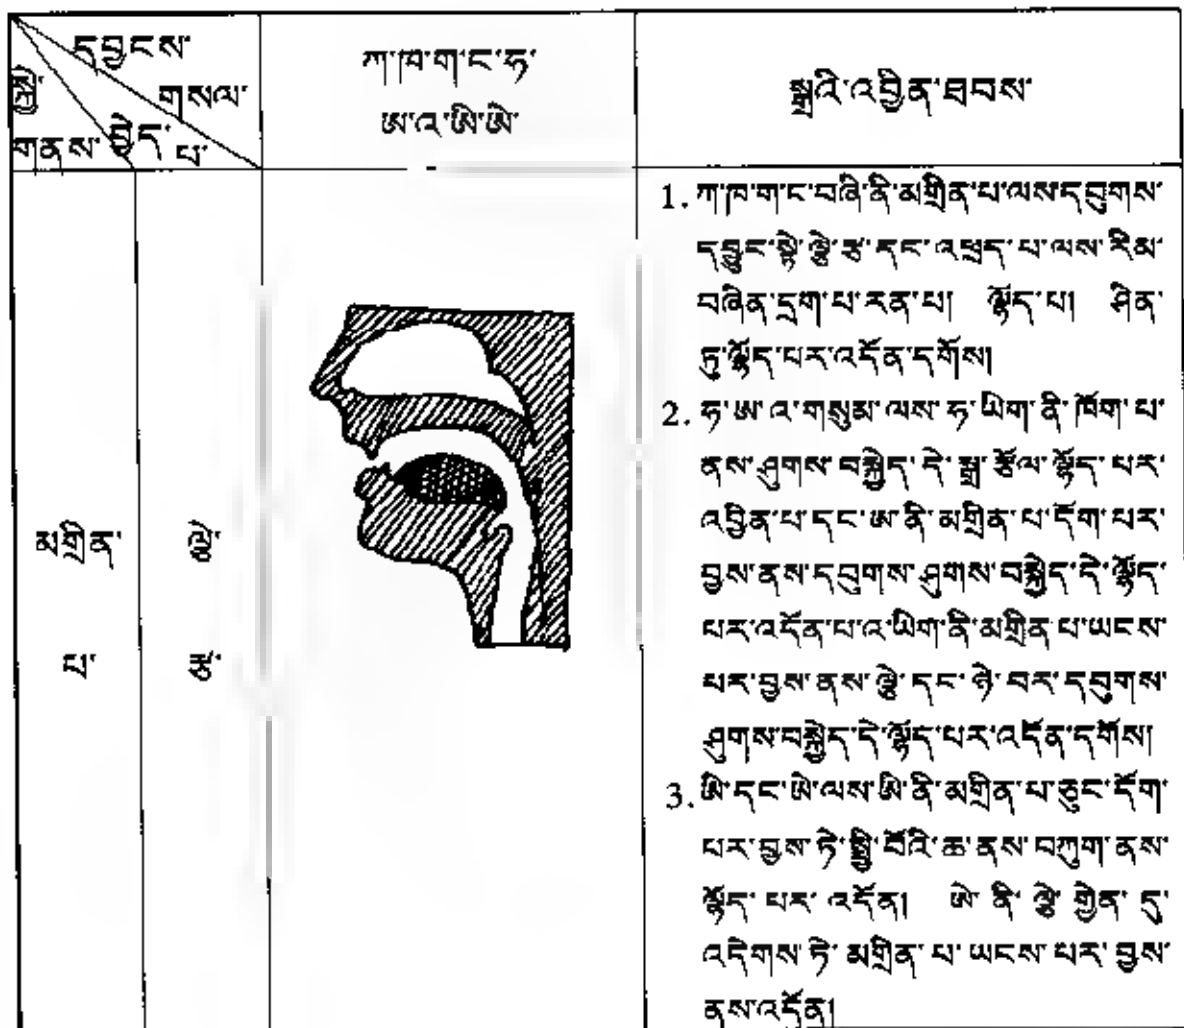 དབྱངས་
གསལ་
སྐྱེ་
གནས་
བྱེད་
པ་
ཀ་ཁ་ག་ང་ཧ་
ཨ་འ་ཨི་ཨེ་
སྒྲའི་འབྱིན་ཐབས་
མགྲིན་
པ་
ལྕེ་
རྩ་
1. ཀ་ཁ་ག་ང་བཞི་ནི་མགྲིན་པ་ལས་དབུགས་
དབྱུང་སྟེ་ལྕེ་རྩ་ནང་འཕྲད་པ་ལས་རིམ་
བཞིན་དྲག་པ་རན་པ། ལྷོད་པ། ཤིན་
ཏུ་ལྷོད་པར་འདོན་དགོས།
2. ཧ་ཨ་འ་གསུམ་ལས་ཧ་ཡིག་ནི་ཁོག་པ་
ནས་ཤུགས་བསྐྱེད་དེ་སྒྲ་རྩོལ་ལྷོད་པར་
འབྱིན་པ་དང་ཨ་ནི་མགྲིན་པ་དོག་པར་
བྱས་ནས་དབུགས་ཤུགས་བསྐྱེད་དེ་ལྷོད་
པར་འདོན་པ་འ་ཡིག་ནི་མགྲིན་པ་ཡངས་
པར་བྱས་ནས་ལྕེ་དང་ཉེ་བར་དབུགས་
ཤུགས་བསྐྱེད་དེ་ལྷོད་པར་འདོན་དགོས།
3. ཨི་དང་ཨེ་ལས་ཨི་ནི་མགྲིན་པ་ཅུང་དོག་
པར་བྱས་ཏེ་སྤྱི་བོའི་ཆ་ནས་བཀུག་ནས་
ལྷོད་པར་འདོན། ཨེ་ནི་ལྕེ་གྱེན་དུ་
འདེགས་ཏེ་མགྲིན་པ་ཡངས་པར་བྱས་
ནས་འདོན།